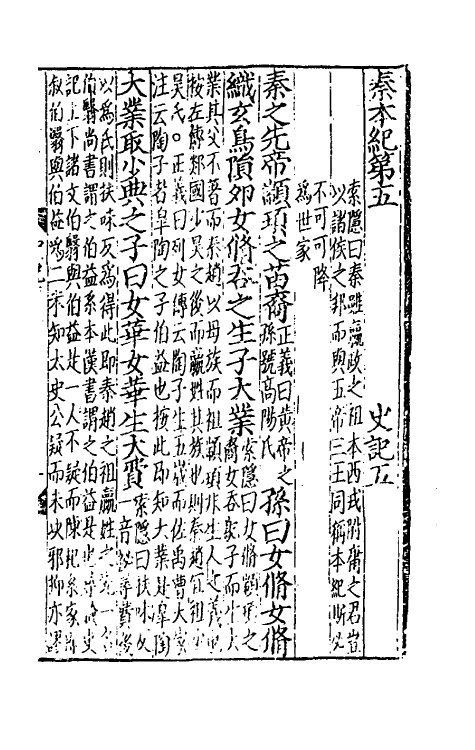 秦本紀第五　史記五
索隱曰秦雖嬴政之祖本西戎附庸之君豈
以諸侯之邦而與五帝三王同稱本紀斯必
不可可降
爲世家
秦之先帝顓頊之苗裔
正義曰黃帝之
孫號高陽氏
孫曰女脩女脩
織玄鳥隕卵女脩吞之生子大業
索隱曰女脩顓頊之
裔女吞鳦子而生大
業其父不著而秦趙以母族而祖顓頊非生人之義也
按左傳郯國少昊之後而嬴姓其族也則秦趙宜祖少
昊氏○正義曰列女傳云陶子生五歲而佐禹曹大家
注云陶子者皐陶之子伯益也按此即知大業是皐陶
大業取少典之子曰女華女華生大費
索隱曰扶味反
音祕尋費後
以爲氏則扶味反爲得此即秦趙之祖嬴姓之先一名
伯翳尚書謂之伯益系本漢書謂之伯益是也尋檢史
記上下諸文伯翳與伯益是一人不疑而陳杞系家即
叙伯翳與伯益爲二未知太史公疑而未決邪抑亦謬